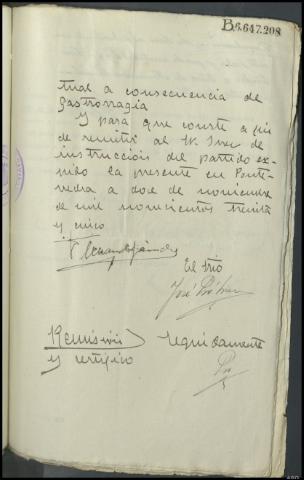 B.6.647.208
tual a consecuencia de
gastrorragia
Y para que conste a fin
de remitir al Sr Juez de
instrucción del partido ex-
pido la presente en Ponte-
vedra a doce de noviembre
de mil novecientos treinta
y cinco
El Srio
José
Remisión seguidamente
y certifico